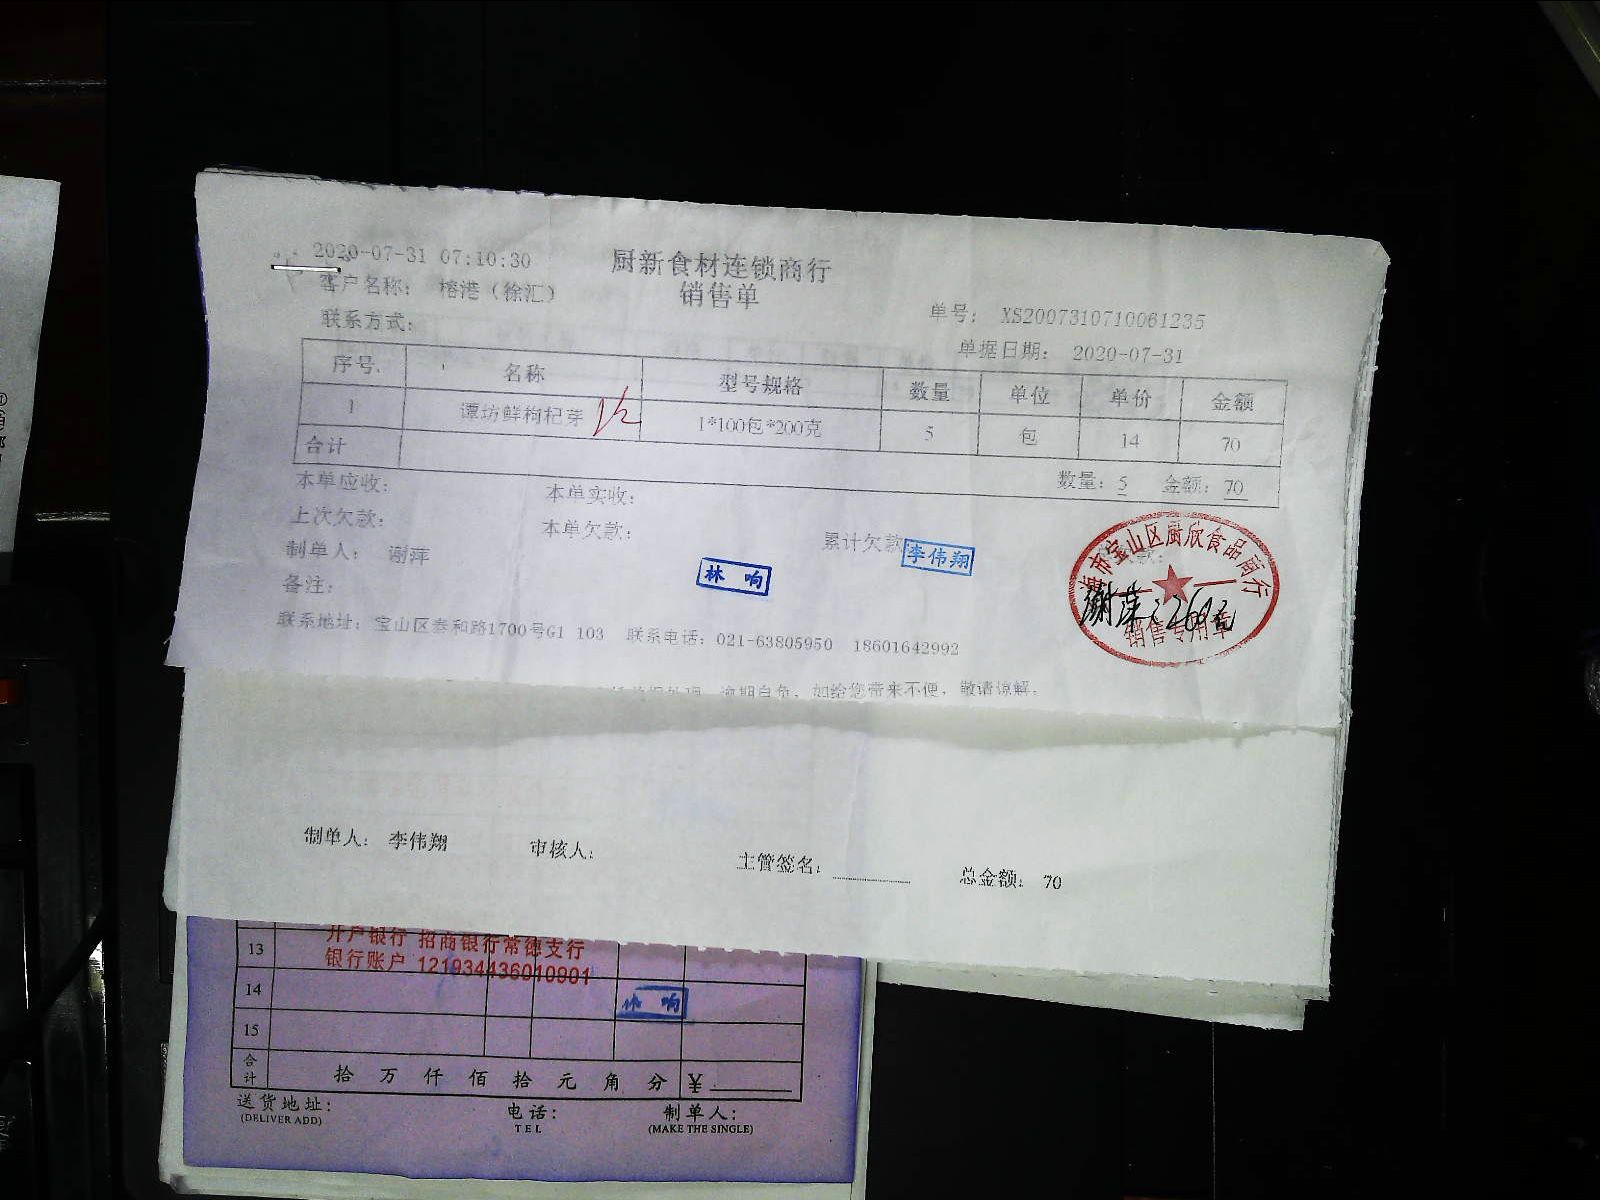 2020-07-31 07:10:30
厨新食材连锁商行
销售单
客户名称： 榕港（徐汇）
单号： XS2007310710061235
联系方式：
单据日期： 2020-07-31
序号 名称 型号规格 数量 单位 单价 金额
1 谭坊鲜枸杞芽 1*100包*200克 5 包 14 70
合计
数量：5 金额：70
本单应收： 本单实收：
上次欠款： 本单欠款： 累计欠款
李伟翔
制单人： 谢萍
林 响
市宝山区厨欣食品商行
销售专用章
备注：
联系地址：宝山区泰和路1700号G1 103 联系电话：021-63805950 18601642992
逾期自负，如给您带来不便，敬请谅解。
制单人： 李伟翔 审核人： 主管签名： 总金额： 70
13 开户银行 招商银行常德支行
银行账户 121934436010901
14 林 响
15
合计 拾 万 仟 佰 拾 元 角 分 ¥
送货地址： 电话： 制单人：
(DELIVER ADD) TEL (MAKE THE SINGLE)